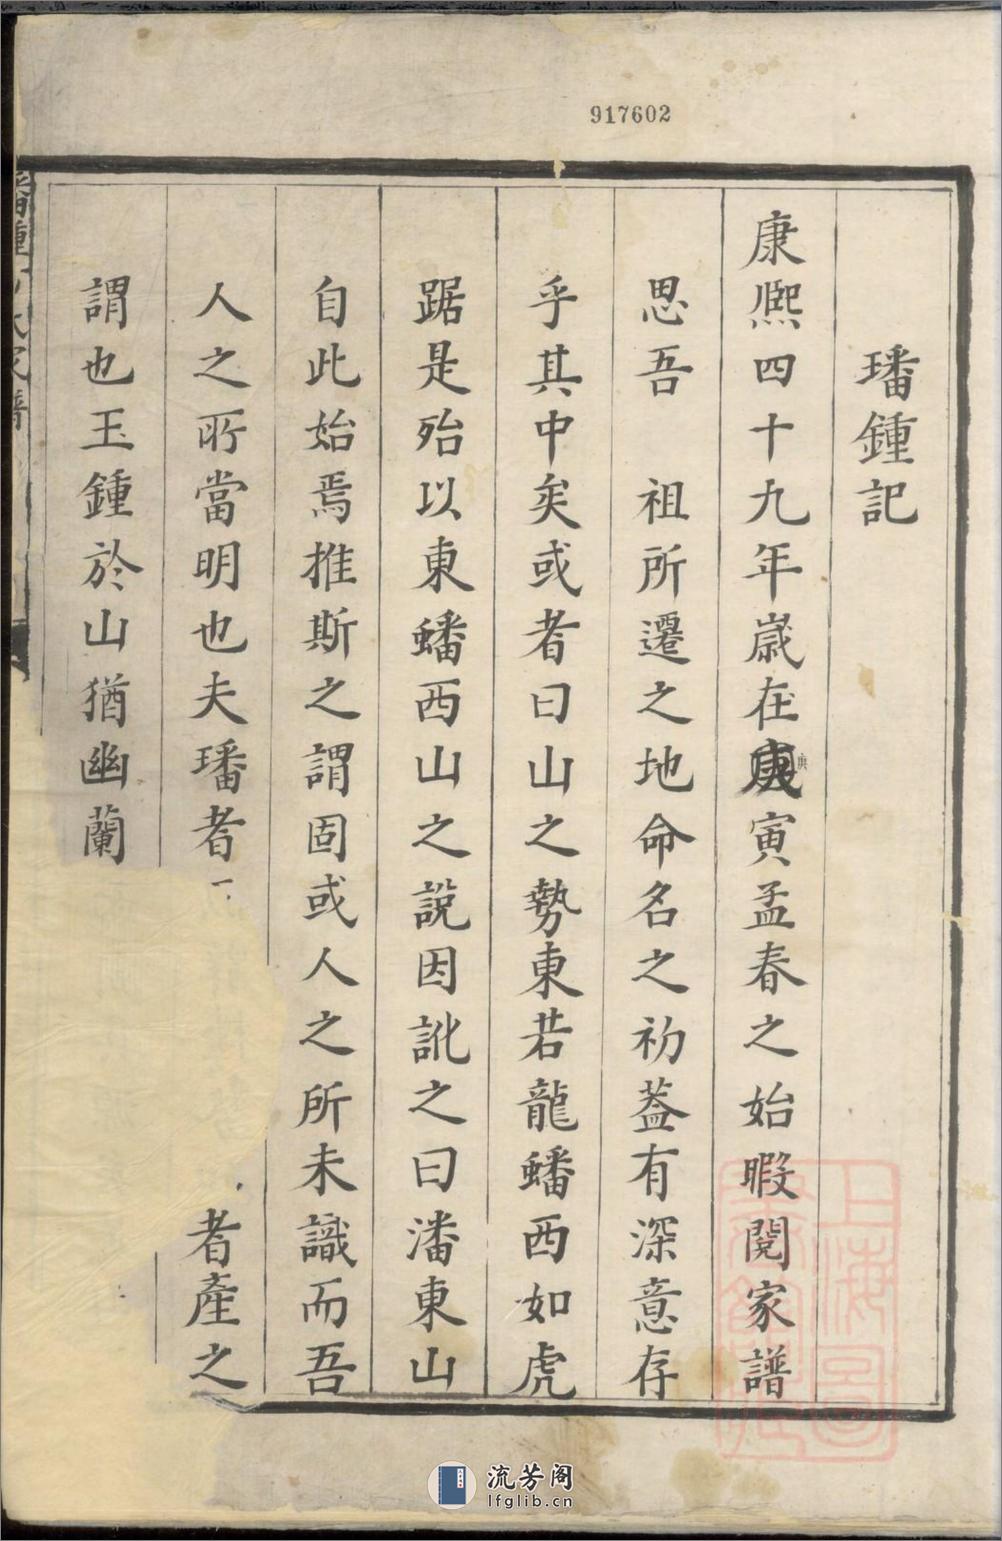 917602
璠鍾記
康熈四十九年嵗在庚寅孟春之始暇閱家譜
庚
思吾　祖所遷之地命名之初葢有深意存
乎其中矣或者曰山之勢東若龍蟠西如虎
踞是殆以東蟠西山之說因訛之曰潘東山
自此始焉推斯之謂固或人之所未識而吾
人之所當明也夫璠者　者產之
謂也玉鍾於山猶幽蘭
家譜
上海圖書館藏
流芳阁
lfglib.cn